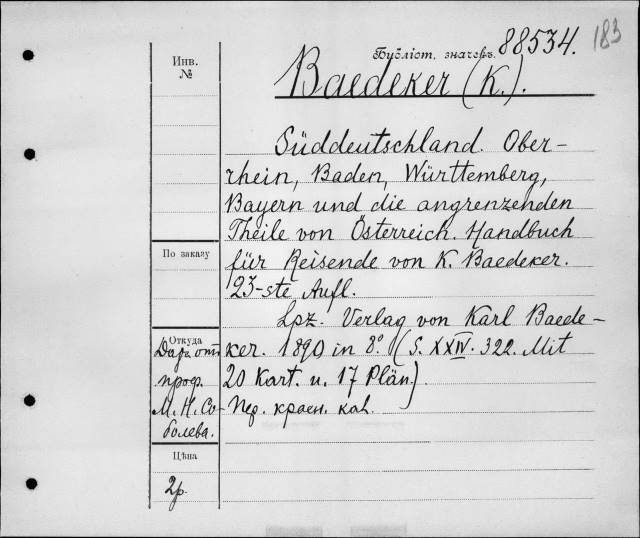 183
Бубліот. значекъ. 88534.
Инв. №
Baedeker (K.).
Süddeutschland. Ober-
rhein, Baden, Württemberg,
Bayern und die angrenzenden
Theile von Österreich. Handbuch
По заказу
für Reisende von K. Baedeker.
23-ste Aufl.
Lpz. Verlag von Karl Baede-
ker. 1890 in 8º. (S. XXIV. 322. Mit
20 Kart. u. 17 Plän.)
Пер. красн. кал.
Откуда
Даръ отъ
проф.
М. Н. Со-
болева.
Цѣна
2р.